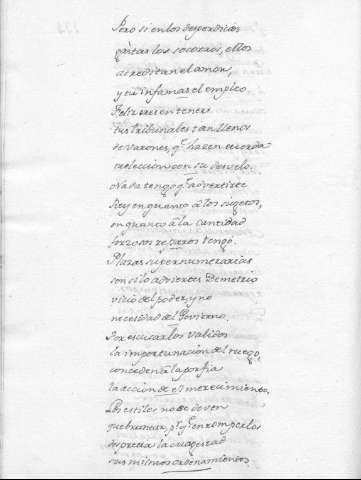 Pero si en los desperdicios
gastas los socorros, ellos
acreditan el amor,
y tu infamas el empleo.
Feliz eres en tener
tus tribunales tan llenos
de varones, q.e hacen
tu eleccion con su desvelo.
Nada tengo q.e advertirte
Rey en quanto â los sugetos,
en quanto â la cantidad
forzosos reparos tengo.
Plazas supernumerarias
son si lo adviertes Demetrio
vicio del poder, y no
necesidad del Govierno.
Por escusar los validos
la importunacion del ruego,
conceden â la porfia
la accion de el merecimiento.
Los estilos no se deven
quebrantar, p.r q.e en romperlos
desprecia la magestad
sus mismos ordenamientos.